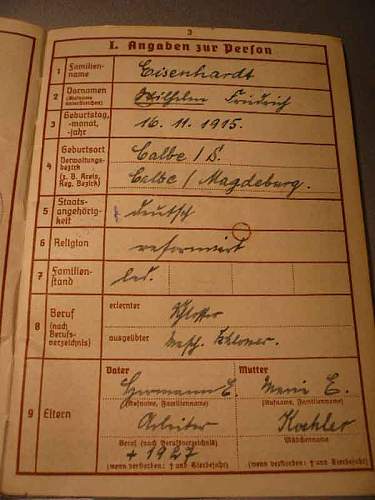 3
I. Angaben zur Person
1 Familien-
name
Eisenhardt
2 Vornamen
(Rufname
unterstreichen)
Wilhelm Friedrich
3 Geburtstag,
-monat,
-jahr
16. 11. 1915.
4 Geburtsort
Verwaltungs-
bezirk
(z. B. Kreis,
Reg. Bezirk)
Calbe / S.
Calbe / Magdeburg.
5 Staats-
angehörig-
keit
deutsch
6 Religion
reformiert
7 Familien-
stand
led.
8 Beruf
(nach
Berufs-
verzeichnis)
erlernter
Schlosser
ausgeübter
Masch. Schlosser.
9 Eltern
Vater
Mutter
Hermann E.
E.
(Rufname, Familienname)
(Rufname, Familienname)
Arbeiter
Koehler
Beruf (nach Berufsverzeichnis)
Mädchenname
+ 1927
(wenn verstorben: † und Sterbejahr)
(wenn verstorben: † und Sterbejahr)